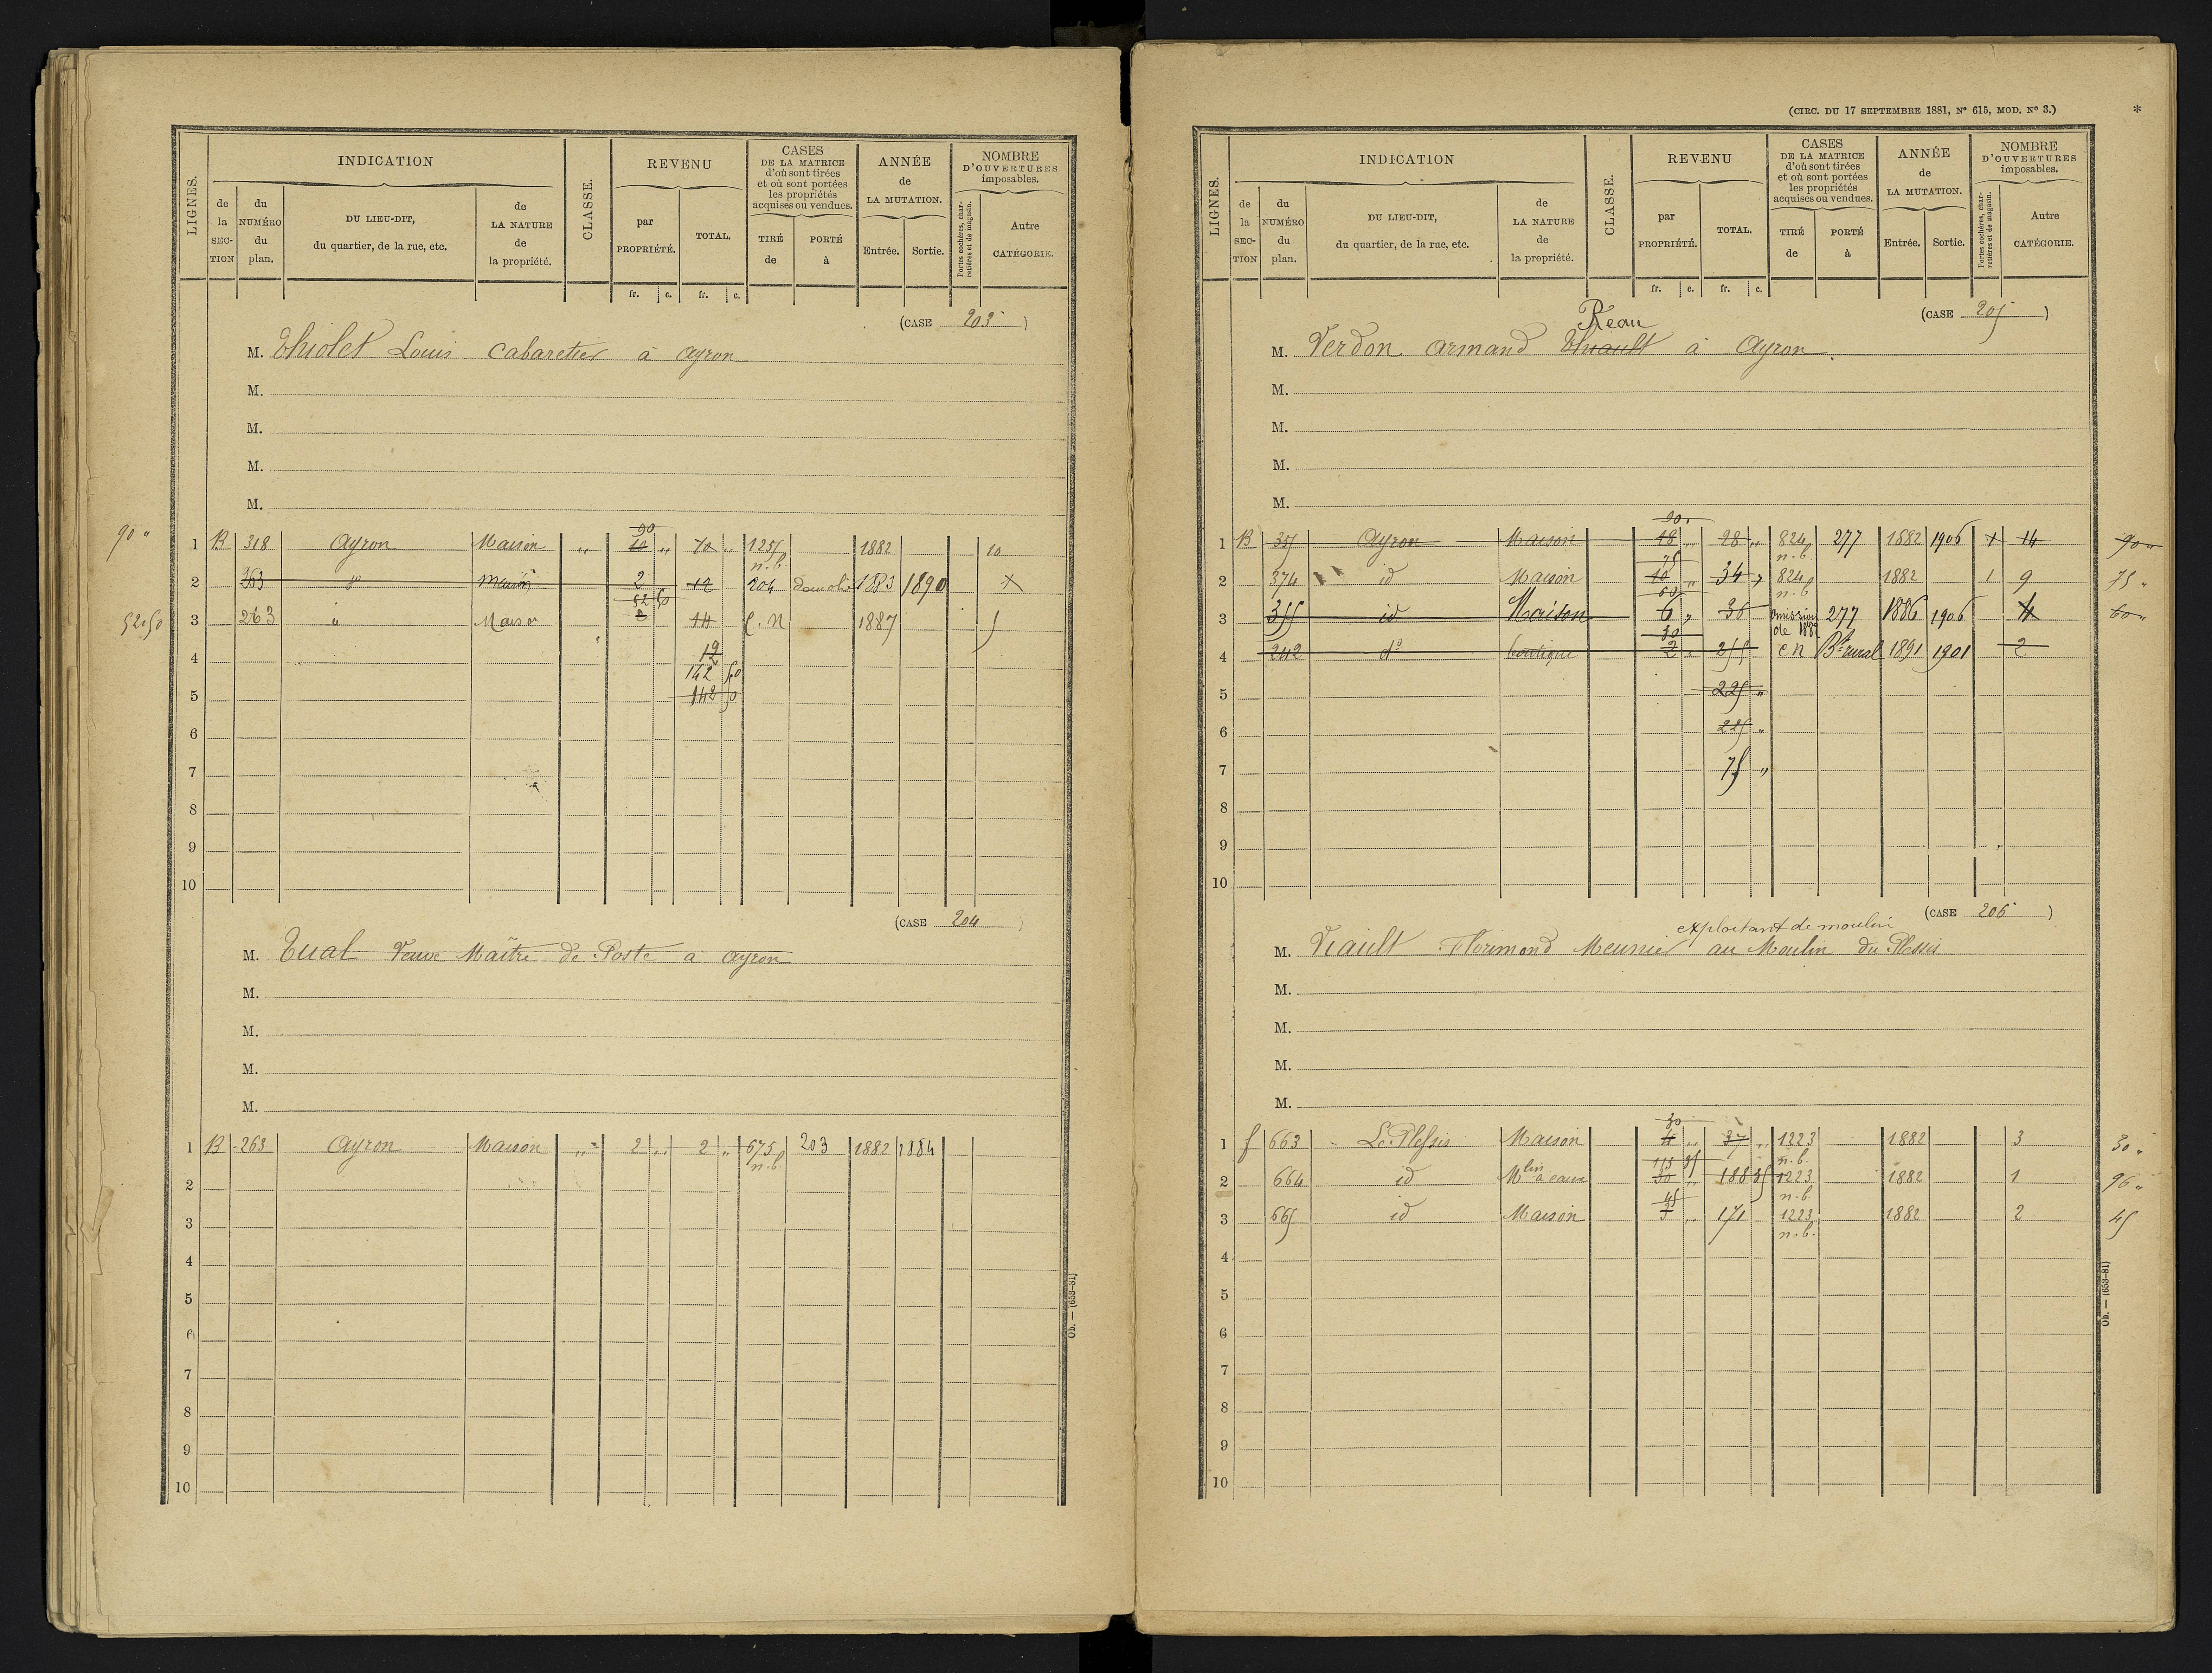 LIGNES.
INDICATION
de la SECTION
du NUMÉRO du plan.
DU LIEU-DIT, du quartier, de la rue, etc.
de LA NATURE de la propriété.
CLASSE.
REVENU
par PROPRIÉTÉ.
TOTAL.
fr. c. fr. c.
CASES DE LA MATRICE d'où sont tirées et où sont portées les propriétés acquises ou vendues.
TIRÉ de
PORTÉ à
ANNÉE de LA MUTATION.
Entrée. Sortie.
NOMBRE D'OUVERTURES imposables.
Portes cochères, charretières et de magasin.
Autre CATÉGORIE.
(CASE 203)
M. Thiolet Louis Cabaretier à Ayron
M.
M.
M.
M.
90
90 " 1 B 318 Ayron Maison " 10 " 70 " 1257 1882 10
n.b.
2 263 do maison 2 12 204 démolie 1883 1890
52 50
52.50 3 263 id Maison 2 14 C.N 1887 5
4 12
142 50
5 142 50
6
7
8
9
10
(CASE 204)
M. Tual Veuve Maître de Poste à Ayron
M.
M.
M.
M.
1 B 263 Ayron Maison " 2 " 2 " 675 203 1882 1884
n.b.
2
3
4
5
6
7
8
9
10
Ob. — (653-81)
(CIRC. DU 17 SEPTEMBRE 1881, N° 615, MOD. N° 3.)
*
LIGNES.
INDICATION
de la SECTION
du NUMÉRO du plan.
DU LIEU-DIT, du quartier, de la rue, etc.
de LA NATURE de la propriété.
CLASSE.
REVENU
par PROPRIÉTÉ.
TOTAL.
fr. c. fr. c.
CASES DE LA MATRICE d'où sont tirées et où sont portées les propriétés acquises ou vendues.
TIRÉ de
PORTÉ à
ANNÉE de LA MUTATION.
Entrée. Sortie.
NOMBRE D'OUVERTURES imposables.
Portes cochères, charretières et de magasin.
Autre CATÉGORIE.
(CASE 205)
Reau
M. Verdon Armand Thiault à Ayron.
M.
M.
M.
M.
90
1 B 355 Ayron Maison 18 " 28 " 824 277 1882 1906 1 14 90 "
75 n.b.
2 374 id Maison 10 " 34 " 824 1882 1 9 75 "
60 n.b.
3 355 id Maison 6 " 36 omission de 1882 277 1886 1906 4 60 "
30
4 242 do boutique 2 " 255 en Bt rural 1891 1901 2
5 225 "
6 225 "
7 75 "
8
9
10
(CASE 206)
exploitant de moulin
M. Viault Florimond Meunier au Moulin du Plessis
M.
M.
M.
M.
30
1 f 663 Le Plessis Maison 4 " 37 " 1223 1882 3 30 "
113 35 n.b.
2 664 id Mlin à eau 30 " 188 35 1223 1882 1 96 "
45 n.b.
3 665 id Maison 3 " 171 1223 1882 2 45
n.b.
4
5
6
7
8
9
10
Ob. — (653-81)